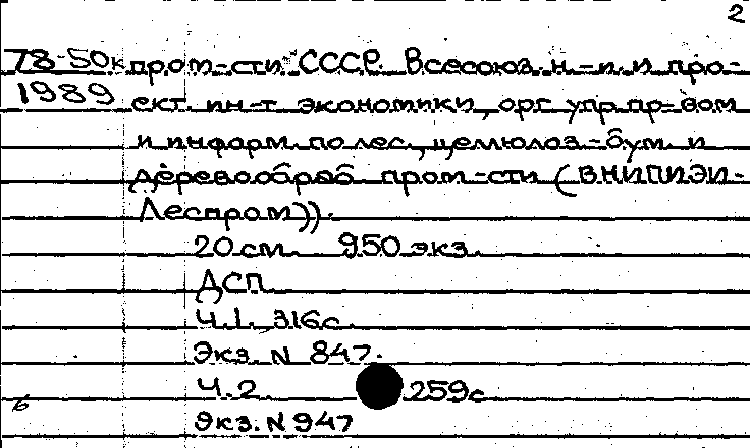 2
78-50к пром-сти СССР. Всесоюз. н.-и. и про-
1989 ект. ин-т экономики, орг. упр. пр-вом
и информ. по лес., целлюлоз.-бум. и
деревообраб. пром-сти (ВНИПИЭИ-
Леспром)).
20 см. 950 экз.
ДСП
Ч.1. 316с.
Экз. N 847.
Ч.2. 259с
б
Экз. N 947